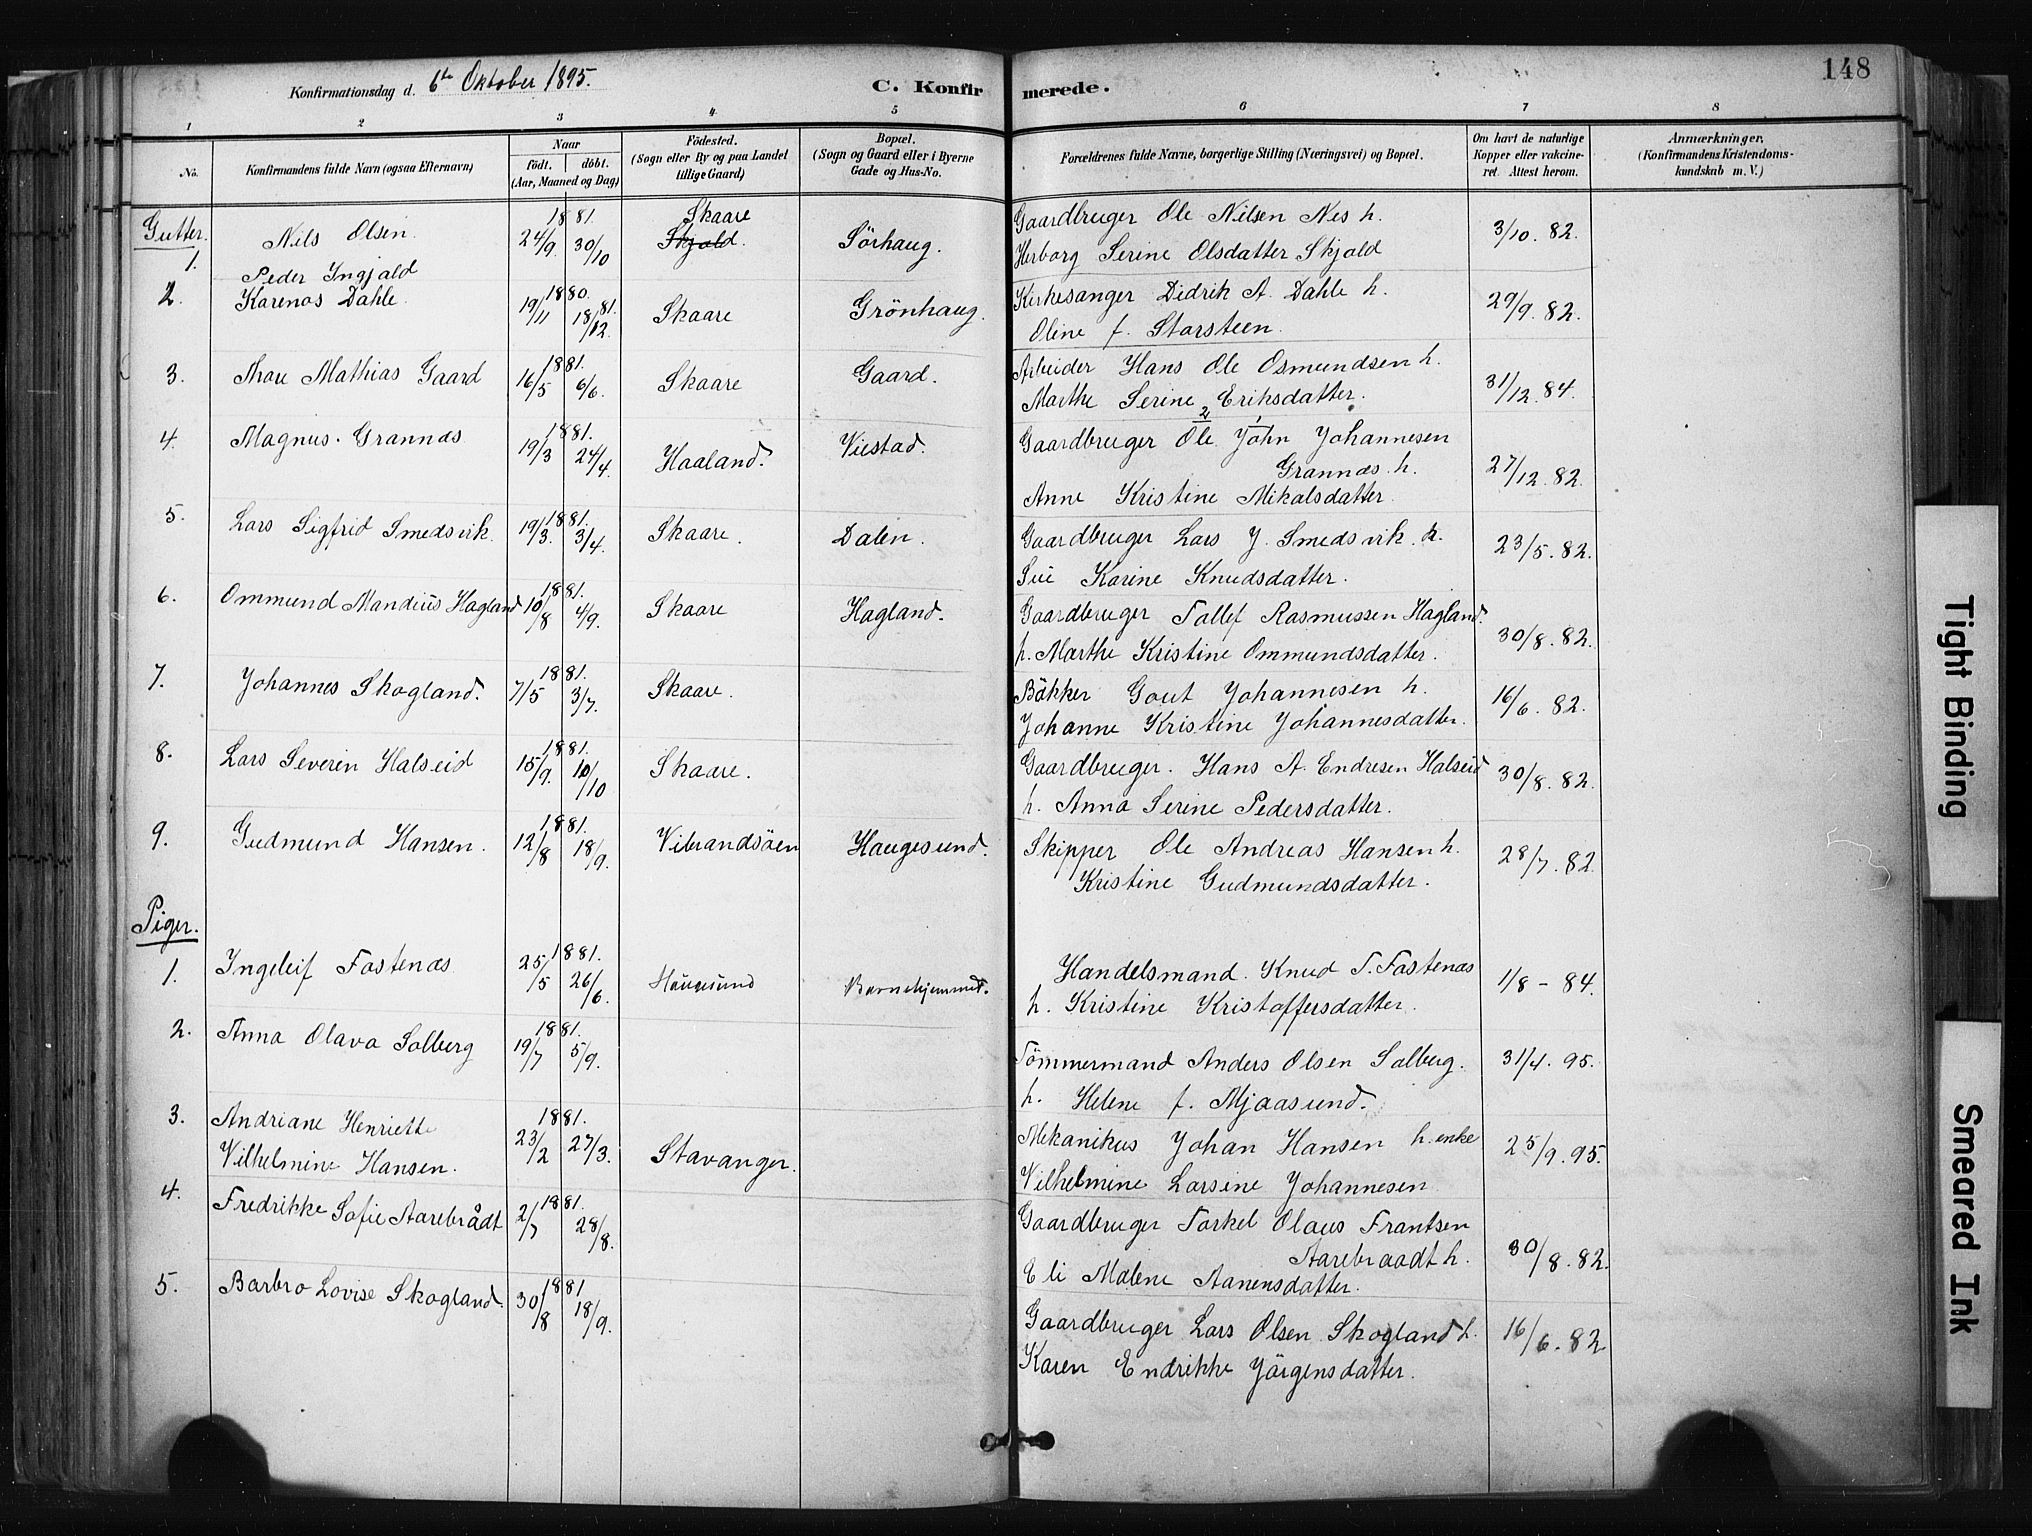 Konfirmationsdag d. 6te Oktober 1895.
C. Konfirmerede.
148
1 2 3 4 5 6 7 8
No.
Konfirmandens fulde Navn (ogsaa Efternavn)
Naar
født. døbt.
(Aar, Maaned og Dag)
Fødested.
(Sogn eller By og paa Landet tillige Gaard)
Bopæl.
(Sogn og Gaard eller i Byerne Gade og Hus-No.
Forældrenes fulde Navne, borgerlige Stilling (Næringsvei) og Bopæl.
Om havt de naturlige Kopper eller vakcineret. Attest herom.
Anmærkninger.
(Konfirmandens Kristendomskundskab m. V.)
Gutter.
1. Nils Olsen. 1881. 24/9. 30/10 Skaare Skjold. Sörhaug.
Gaardbruger Ole Nilsen Nes h.
Herborg Serine Olsdatter Skjold
3/10. 82.
2. Peder Ingjald
Karenas Dahle. 1880. 19/11 81. 18/12. Skaare Grönhaug.
Kirkesanger Didrik A. Dahle h.
Oline f. Storsteen.
29/9. 82.
3. Mathias Gaard 1881. 16/5 6/6. Skaare Gaard.
Arbeider Hans Ole Osmundsen h.
Marthe Serine Eriksdatter.
31/12. 84.
4. Magnus Grannas 1881. 19/3 24/4. Haaland. Viestad.
Gaardbruger Ole 2 John 1 Johannesen
Grannas h.
Anne Kristine Mikalsdatter.
27/12. 82.
5. Lars Sigfrid Smedsvik. 1881. 19/3. 3/4. Skaare. Dalen.
Gaardbruger Lars J. Smedsvik. h.
Siri Karine Knudsdatter.
23/5. 82.
6. Ommund Mandius Hagland 1881. 10/8 4/9. Skaare Hagland.
Gaardbruger Tollef Rasmussen Hagland.
h. Marthe Kristine Ommundsdatter.
30/8. 82.
7. Johannes Skogland. 1881. 7/5 3/7. Skaare.
Bökker Gout Johannesen h.
Johanne Kristine Johannesdatter.
16/6. 82.
8. Lars Severin Halseid 1881. 15/9. 10/10 Skaare.
Gaardbruger. Hans A. Endresen Halseid
h. Anna Serine Pedersdatter.
30/8. 82.
9. Gudmund Hansen. 1881. 12/8 18/9. Vibrandsöen Haugesund.
Skipper Ole Andreas Hansen h.
Kristine Gudmundsdatter.
28/7. 82
Piger.
1. Ingeleif Fostenæs 1881. 25/5 26/6. Haugesund Barnehjemmet.
Handelsmand. Knud T. Fostenæs
h. Kristine Kristoffersdatter.
1/8 - 84.
2. Anna Olava Solberg 1881. 19/7 5/9.
Tömmermand Anders Olsen Solberg.
h. Helene f. Mjaasund.
31/4. 95.
3. Andriane Henriette
Vilhelmine Hansen. 1881. 23/2 27/3. Stavanger.
Mekanikus Johan Hansen h. enke
Vilhelmine Larsine Johannesen
25/9. 95.
4. Fredrikke Sofie Aarebrådt 1881. 2/7 28/8.
Gaardbruger Torkel Olaus Frantsen
Aarebraadt h.
Eli Malene Aanensdatter.
30/8. 82.
5. Barbro Lovise Skogland. 1881 30/8 18/9.
Gaardbruger Lars Olsen Skogland h.
Karen Endrikke Jörgensdatter.
16/6. 82
Tight Binding
Smeared Ink